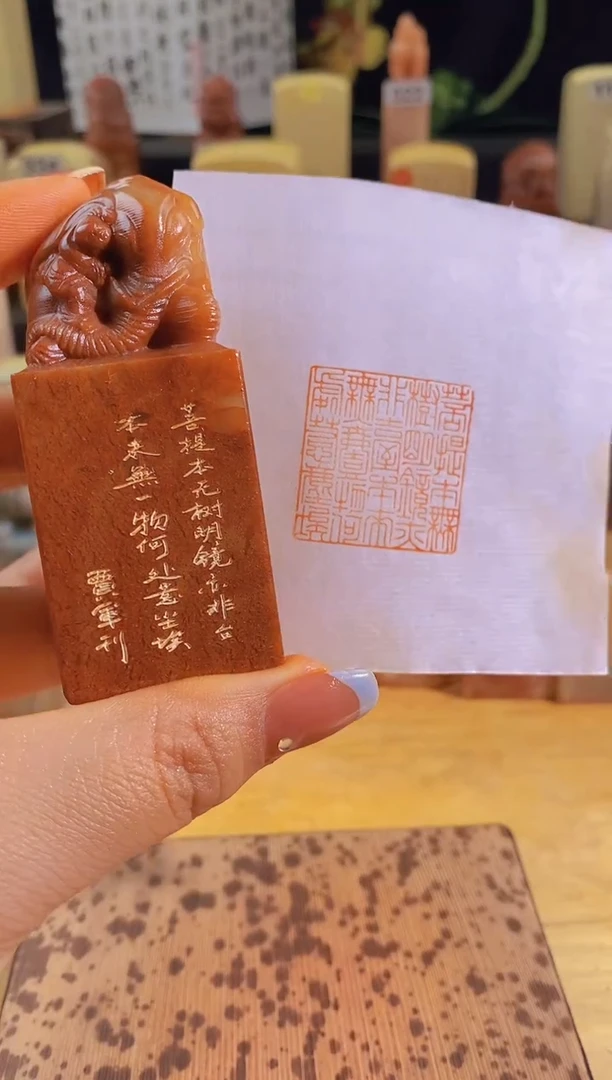 菩提本无树明镜亦非台
本来無一物何处惹尘埃
賈军刊
菩提本無
樹明鏡亦
非臺本來
無一物何
處惹塵埃